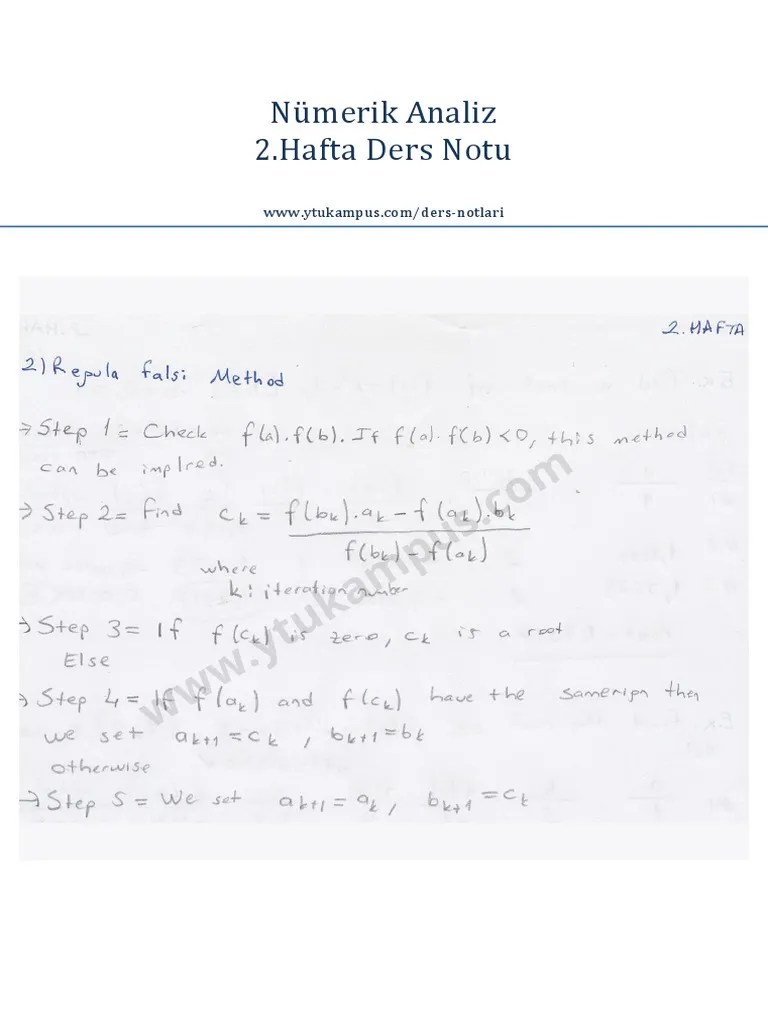 Nümerik Analiz
2.Hafta Ders Notu
www.ytukampus.com/ders-notlari
2.HAFTA
2) Repula falsi Method
→ Step 1 = Check f(a).f(b). If f(a).f(b) <0, this method
can be implred.
→ Step 2 = Find c_k = f(b_k).a_k - f(a_k).b_k
f(b_k) - f(a_k)
where
k: iteration number
→ Step 3 = If f(c_k) is zero, c_k is a root
Else
→ Step 4 = If f(a_k) and f(c_k) have the samerign then
we set a_k+1 = c_k , b_k+1 = b_k
otherwise
→ Step 5 = We set a_k+1 = a_k, b_k+1 = c_k
www.ytukampus.com